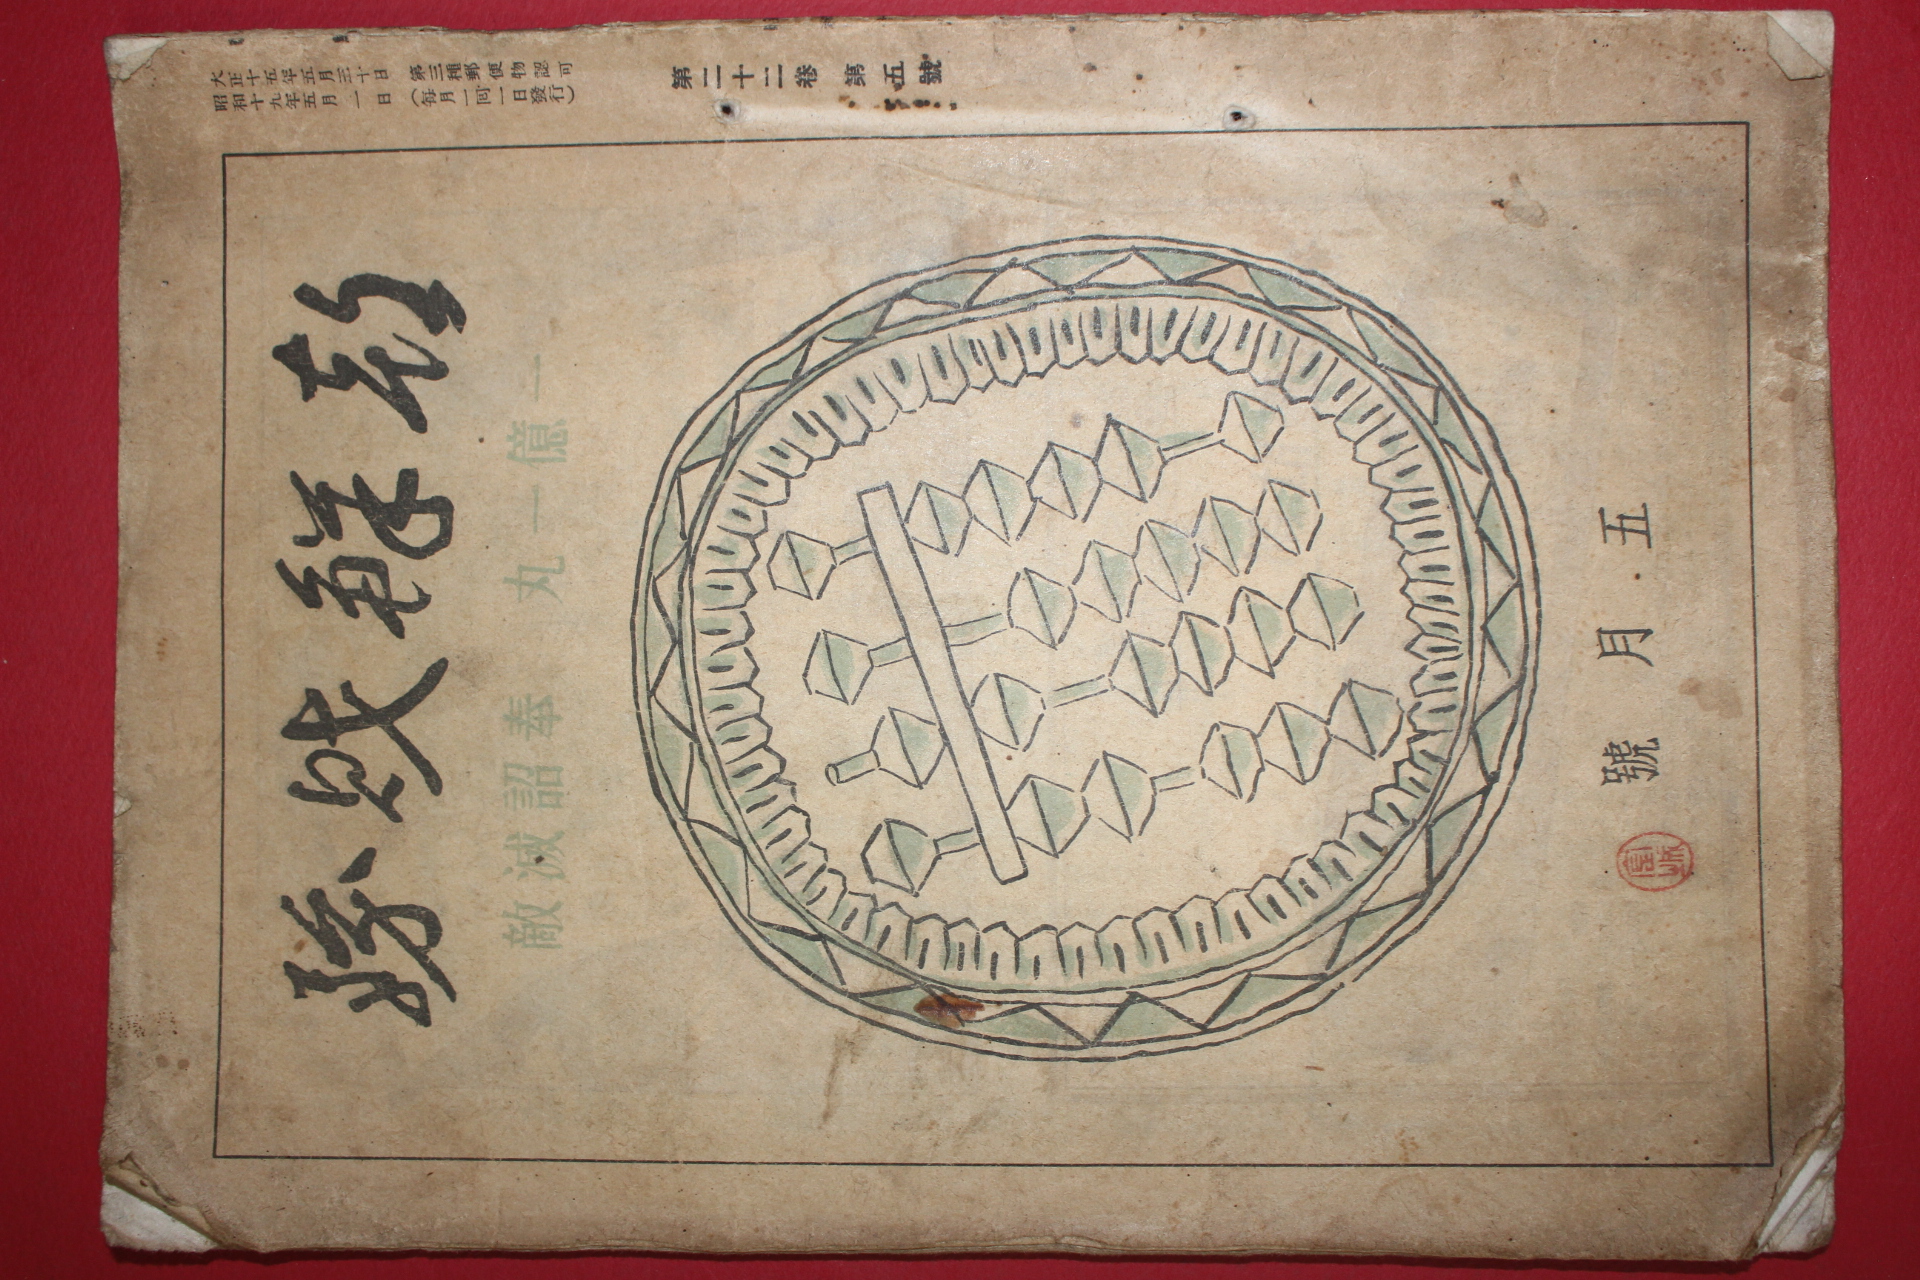 大正十五年五月三十日 第三種郵便物認可
昭和十九年五月一日 (每月一回一日發行)
第二十二卷 第五號
朝鮮財務
一億一丸 奉詔滅敵
五月號